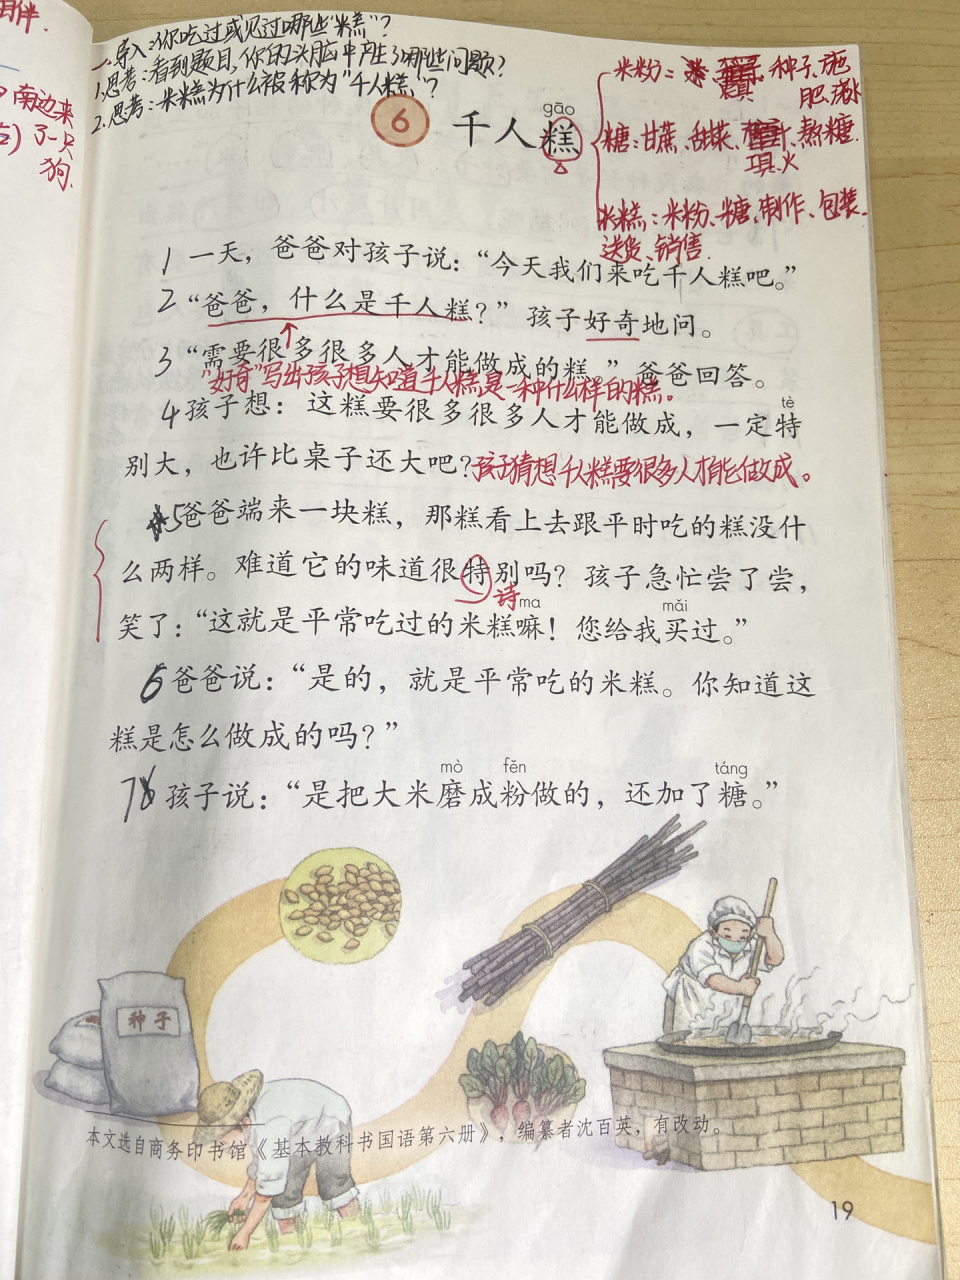 相伴.
南边来
了一只
狗.
一.导入:你吃过或见过哪些"米糕"?
1.思考:看到题目,你的头脑中产生了哪些问题?
2.思考:米糕为什么被称为"千人糕"?
6 千人糕
gāo
米粉: 种子、施
肥、滚水
糖:甘蔗、甜菜、熬糖.
米糕:米粉、糖、制作、包装.
送货、销售.
1 一天,爸爸对孩子说:“今天我们来吃千人糕吧。”
2 “爸爸,什么是千人糕?”孩子好奇地问。
3 “需要很多很多人才能做成的糕。”爸爸回答。
"好奇"写出孩子想知道千人糕是一种什么样的糕。
tè
4 孩子想:这糕要很多很多人才能做成,一定特
别大,也许比桌子还大吧?孩子猜想千人糕要很多人才能做成。
5 爸爸端来一块糕,那糕看上去跟平时吃的糕没什
么两样。难道它的味道很特别吗?孩子急忙尝了尝,
诗 ma mǎi
笑了:“这就是平常吃过的米糕嘛!您给我买过。”
6 爸爸说:“是的,就是平常吃的米糕。你知道这
糕是怎么做成的吗?”
mò fěn táng
7 孩子说:“是把大米磨成粉做的,还加了糖。”
种子
本文选自商务印书馆《基本教科书国语第六册》,编纂者沈百英,有改动。
19